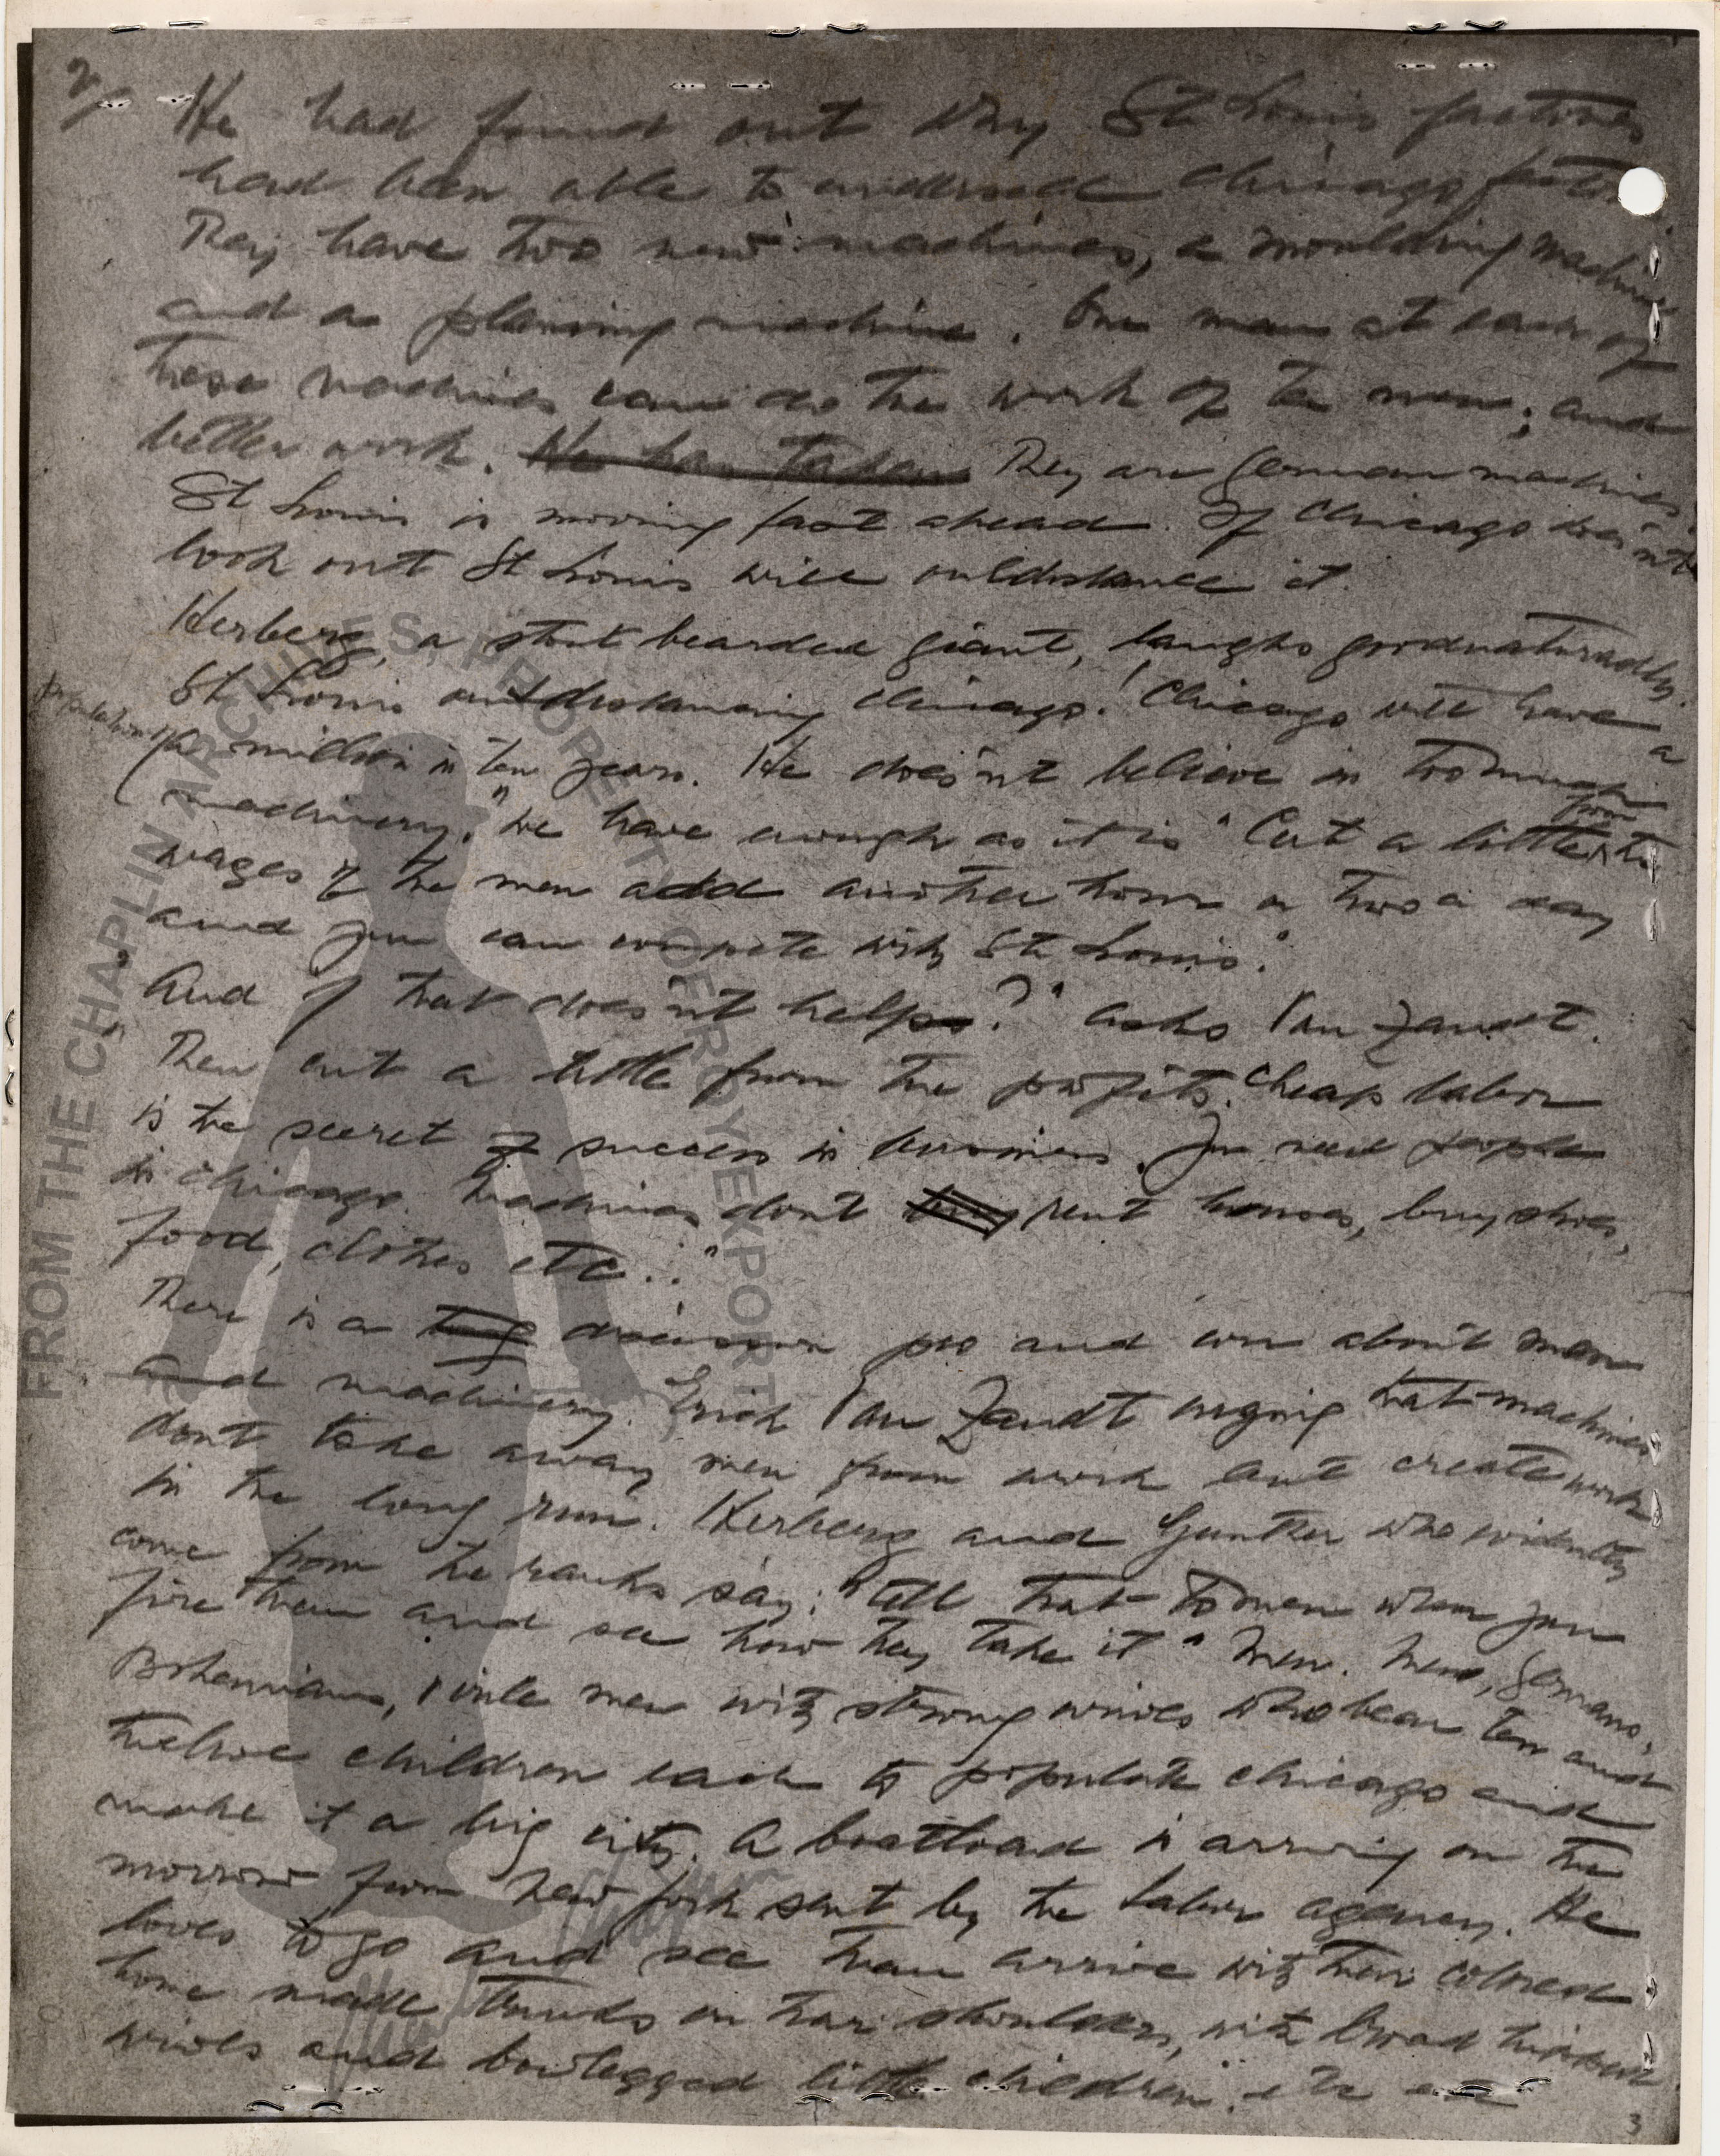 2/
He had found out why St Louis factories
had been able to undersell Chicago
They have two new machines, a moulding machine
and a planing machine. One man at each of
these machines can do the work of ten men; and
better work. He has taken They are German machines.
St Louis is moving fast ahead. If Chicago does'nt
look out St Louis will outdistance it.
Kerberg, a stout bearded giant, laughs goodnaturadly.
St Louis outdistancing Chicago! Chicago will have a
population
million in ten years. He does'nt believe in too much
machinery. "We have enough as it is" Cut a little from the
wages of the men add another hour or two a day
and you can compete with St Louis."
"And if that does'nt help?" asks Van Zandt.
"Then cut a little from the profits. Cheap labor
is the secret of success in business. You need people
in Chicago. Machines dont buy rent houses, buy shoes,
food, clothes etc.."
There is a discussion pro and con about man
and machinery. Erich Van Zandt urging that machines
dont take away men from work but create work
in the long run. Kerberg and Gunther who evidently
come from the ranks say: "Tell that to men when you
fire them and see how they take it" Men. Men, Germans,
Bohemians, virile men with strong wives who bear ten and
twelve children each to populate Chicago and
make it a big city. A boatload is arriving on the
morrow from New York sent by the labor agency. He
loves to go and see them arrive with their colored
home made trunks on their shoulders, with broad hipped
wives and bowlegged little children. etc etc
3
FROM THE CHAPLIN ARCHIVES, PROPERTY OF ROY EXPORT